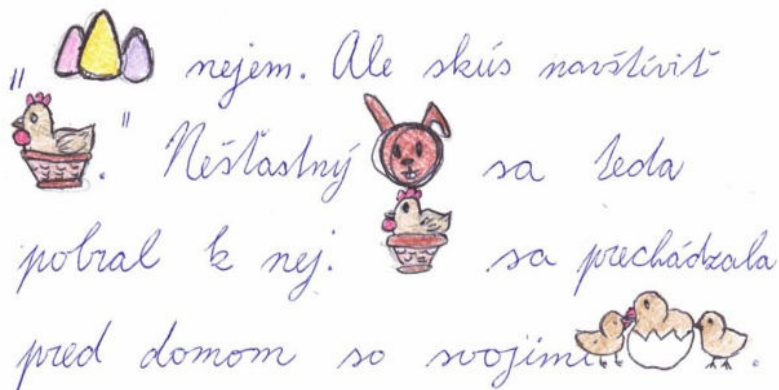 " nejem. Ale skús navštíviť
." Nešťastný sa teda
pobral k nej. sa prechádzala
pred domom so svojimi .